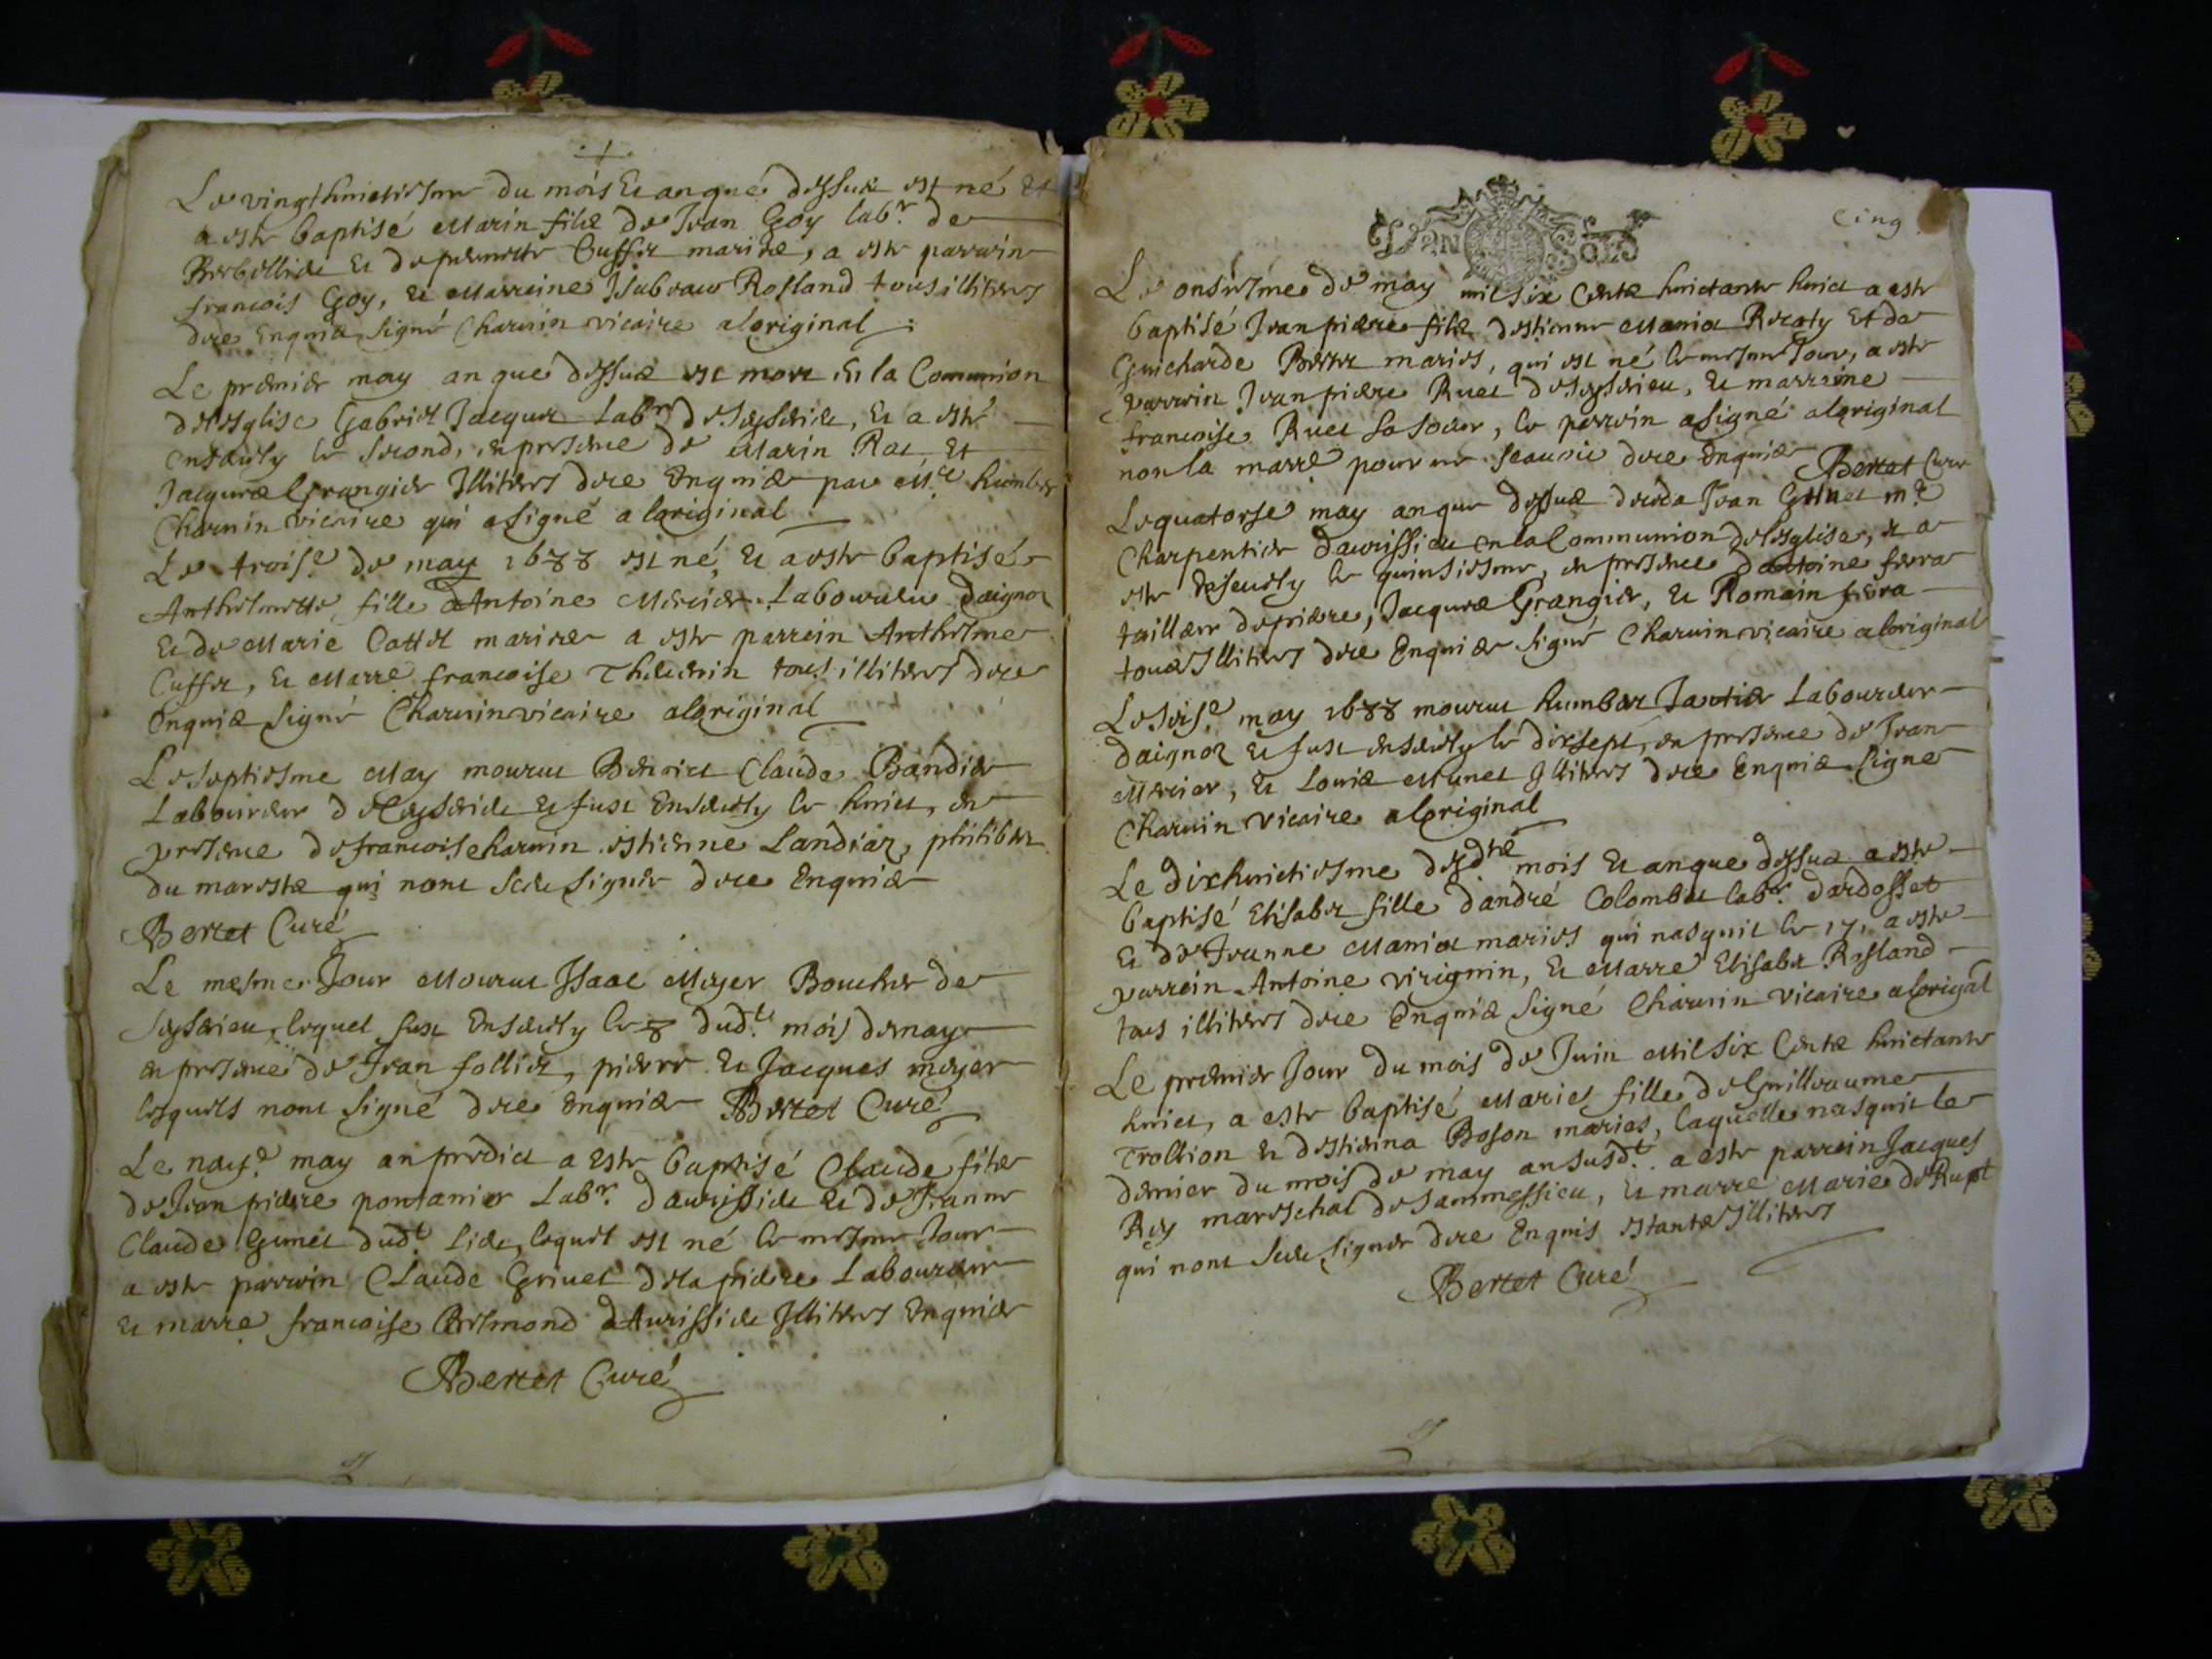 Le vingt huictiesme du mois et an que dessus est né et
a este baptisé Marin filz de Jean Goy labr. de
et de Cusset mariez, a este parrein
francois Goy, et Marreine Isabeau Rolland tous illiteres
dere Enquis signé Charuin vicaire a loriginal
Le premier may an que dessus est mort en la Communion
de lesglise Gabriel Jacquet Labr. de Seysseieu, et a esté
ensevely le second, en presence de Marin Rat, et
Jacques Grangier Illiteres dere Enquis par Mre humber
Charuin vicaire qui a signé a loriginal
Le troise. de may 1688 est né, et a este baptisée
Anthelmette fille dAntoine Mercier Laboureur daignoz
et de Marie Cottet mariez a este parrein Anthelme
Cusset, et Marre francoise tous illiteres dere
Enquis signé Charuin vicaire a loriginal
Le septiesme May mourut Claude Bandier
Laboureur de Ceysseieu et fust Ensevely le huict, en
presence de francois Charuin estienne Landiaz, philiber
du marestz qui nont sceu signer dere Enquis
Bertet Curé
Le mesme Jour Mourut Isaac Meyer Boucher de
Seyseieu, lequel fust Ensevely le 8 dudt. mois de may
en presence de Jean follier, pierre et Jacques meyer
lesquels nont signé dere enquis Bertet Curé
Le may an predict a este baptisé Claude filz
de Jean piere pontanier Labr. daurissieu et de Jeanne
Claude Gunet dudt. lieu, lequel est né le mesme Jour
a este parrein Claude Grivet de la piere Laboureur
et marre francoise Bermond dAurissieu Illiteres Enquis
Bertet Curé
cinq
Le onsiesme de may mil six Centz huictante huict a este
baptisé Jean piere filz destienne Maniet et de
Guicharde mariés, qui est né le mesme Jour, a este
parrein Jean piere Ruet de Seyseieu, et marreine
francoise Ruet sa soeur, le parrein a signé a loriginal
non la marre pour ne scauoir dere Enquis Bertet Curé
Le quatorse may an que dessus deceda Jean me
Charpentier daurissieu en la Communion de lesglise, et a
este Enseuely le quinsiesme, en presence dantoine ferra
tailleur de piere, Jacques Grangier, et Romain ferra
tous Illiteres dere Enquis signé Charuin vicaire a loriginal
Le seise may 1688 mourut humber Laboureur
daignoz et fust enseuely le dixsept, en presence de Jean
Mercier, et Louis Munet Illiteres dere Enquis signé
Charuin vicaire a loriginal
Le dixhuictiesme desdtz mois et an que dessus a este
baptisé Elisabet fille dandré Colombet labr. dardosset
et de Jeanne Maniet mariés qui nasquit le 17, a este
parrein Antoine virignin, et Marre Elisabet Rolland
tous illiteres dere Enquis signé Charuin vicaire a lorigal
Le premier Jour du mois de Juin Mil six Centz huictante
huict, a este baptisé Marie fille de Guilleaume
Trollion et destienna Boson mariés, laquelle nasquit le
dernier du mois de may an susdt. a este parrein Jacques
Rey mareschal de Sammessieu, et marre Marie de Rupt
qui nont sceu signer dere Enquis estantz Illiteres
Bertet Curé